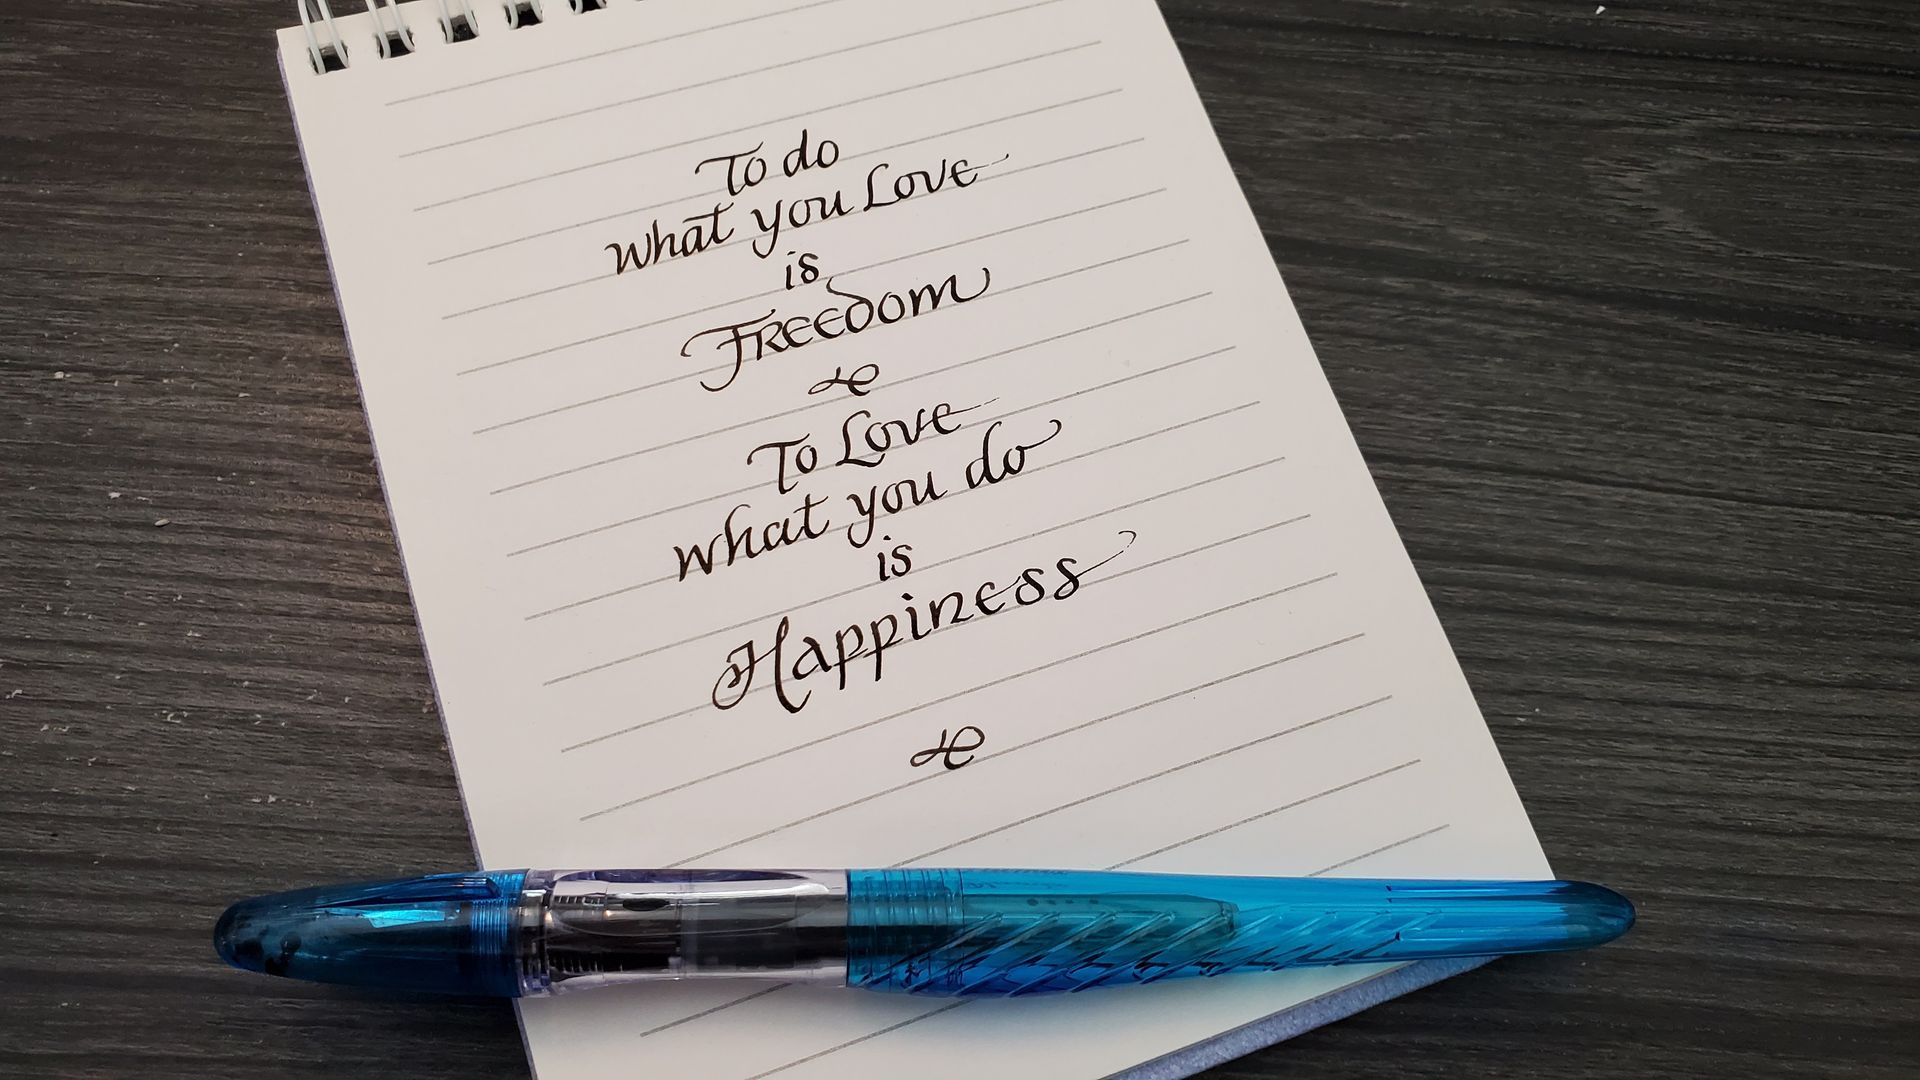 To do
what you Love
is
Freedom
To Love
what you do
is
Happiness